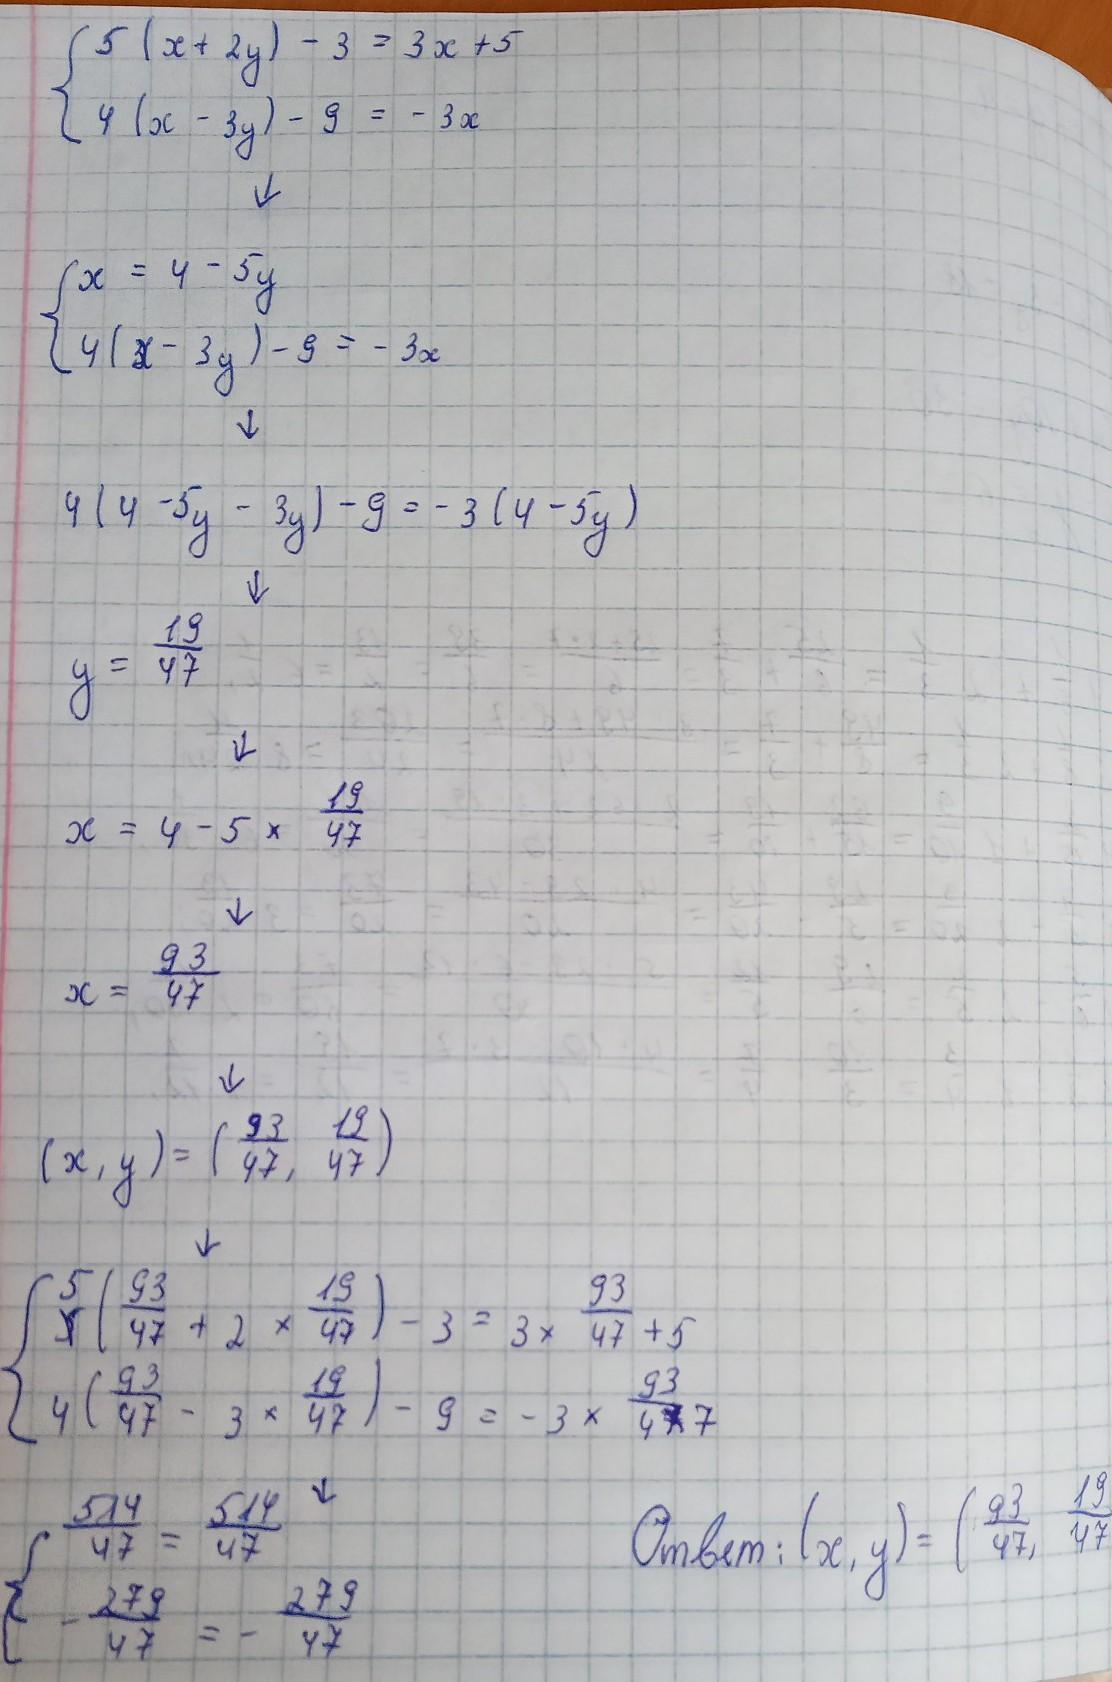 { 5 (x + 2y) - 3 = 3x + 5
4 (x - 3y) - 9 = - 3x
↓
{ x = 4 - 5y
4 (x - 3y) - 9 = - 3x
↓
4 (4 - 5y - 3y) - 9 = - 3 (4 - 5y)
↓
y = 19/47
↓
x = 4 - 5 × 19/47
↓
x = 93/47
↓
(x, y) = (93/47, 19/47)
↓
{ 5 (93/47 + 2 × 19/47) - 3 = 3 × 93/47 + 5
4 (93/47 - 3 × 19/47) - 9 = - 3 × 93/47
↓
{ 514/47 = 514/47
- 279/47 = - 279/47
Ответ: (x, y) = (93/47, 19/47